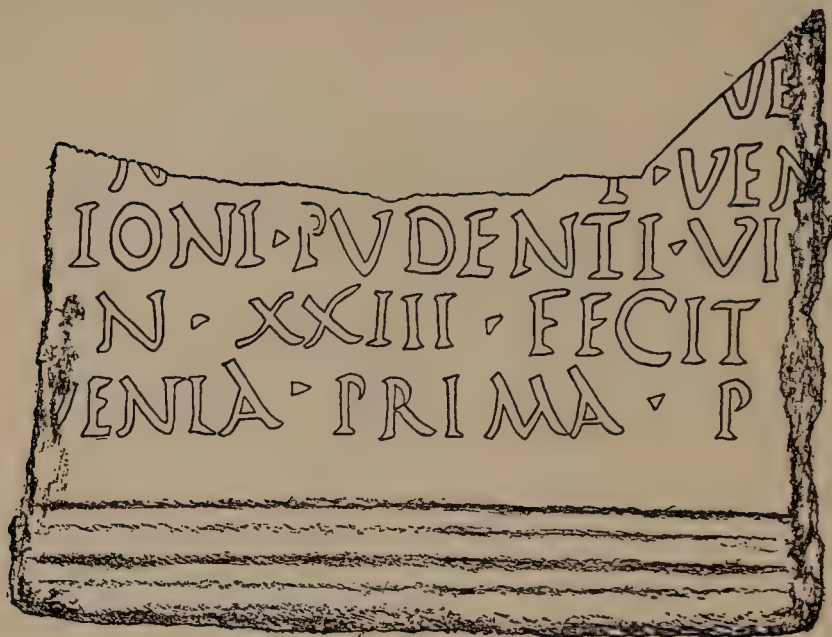 VE
I · VEN
IONI · PVDENTI · VI
N · XXIII · FECIT
VENIA · PRIMA · P